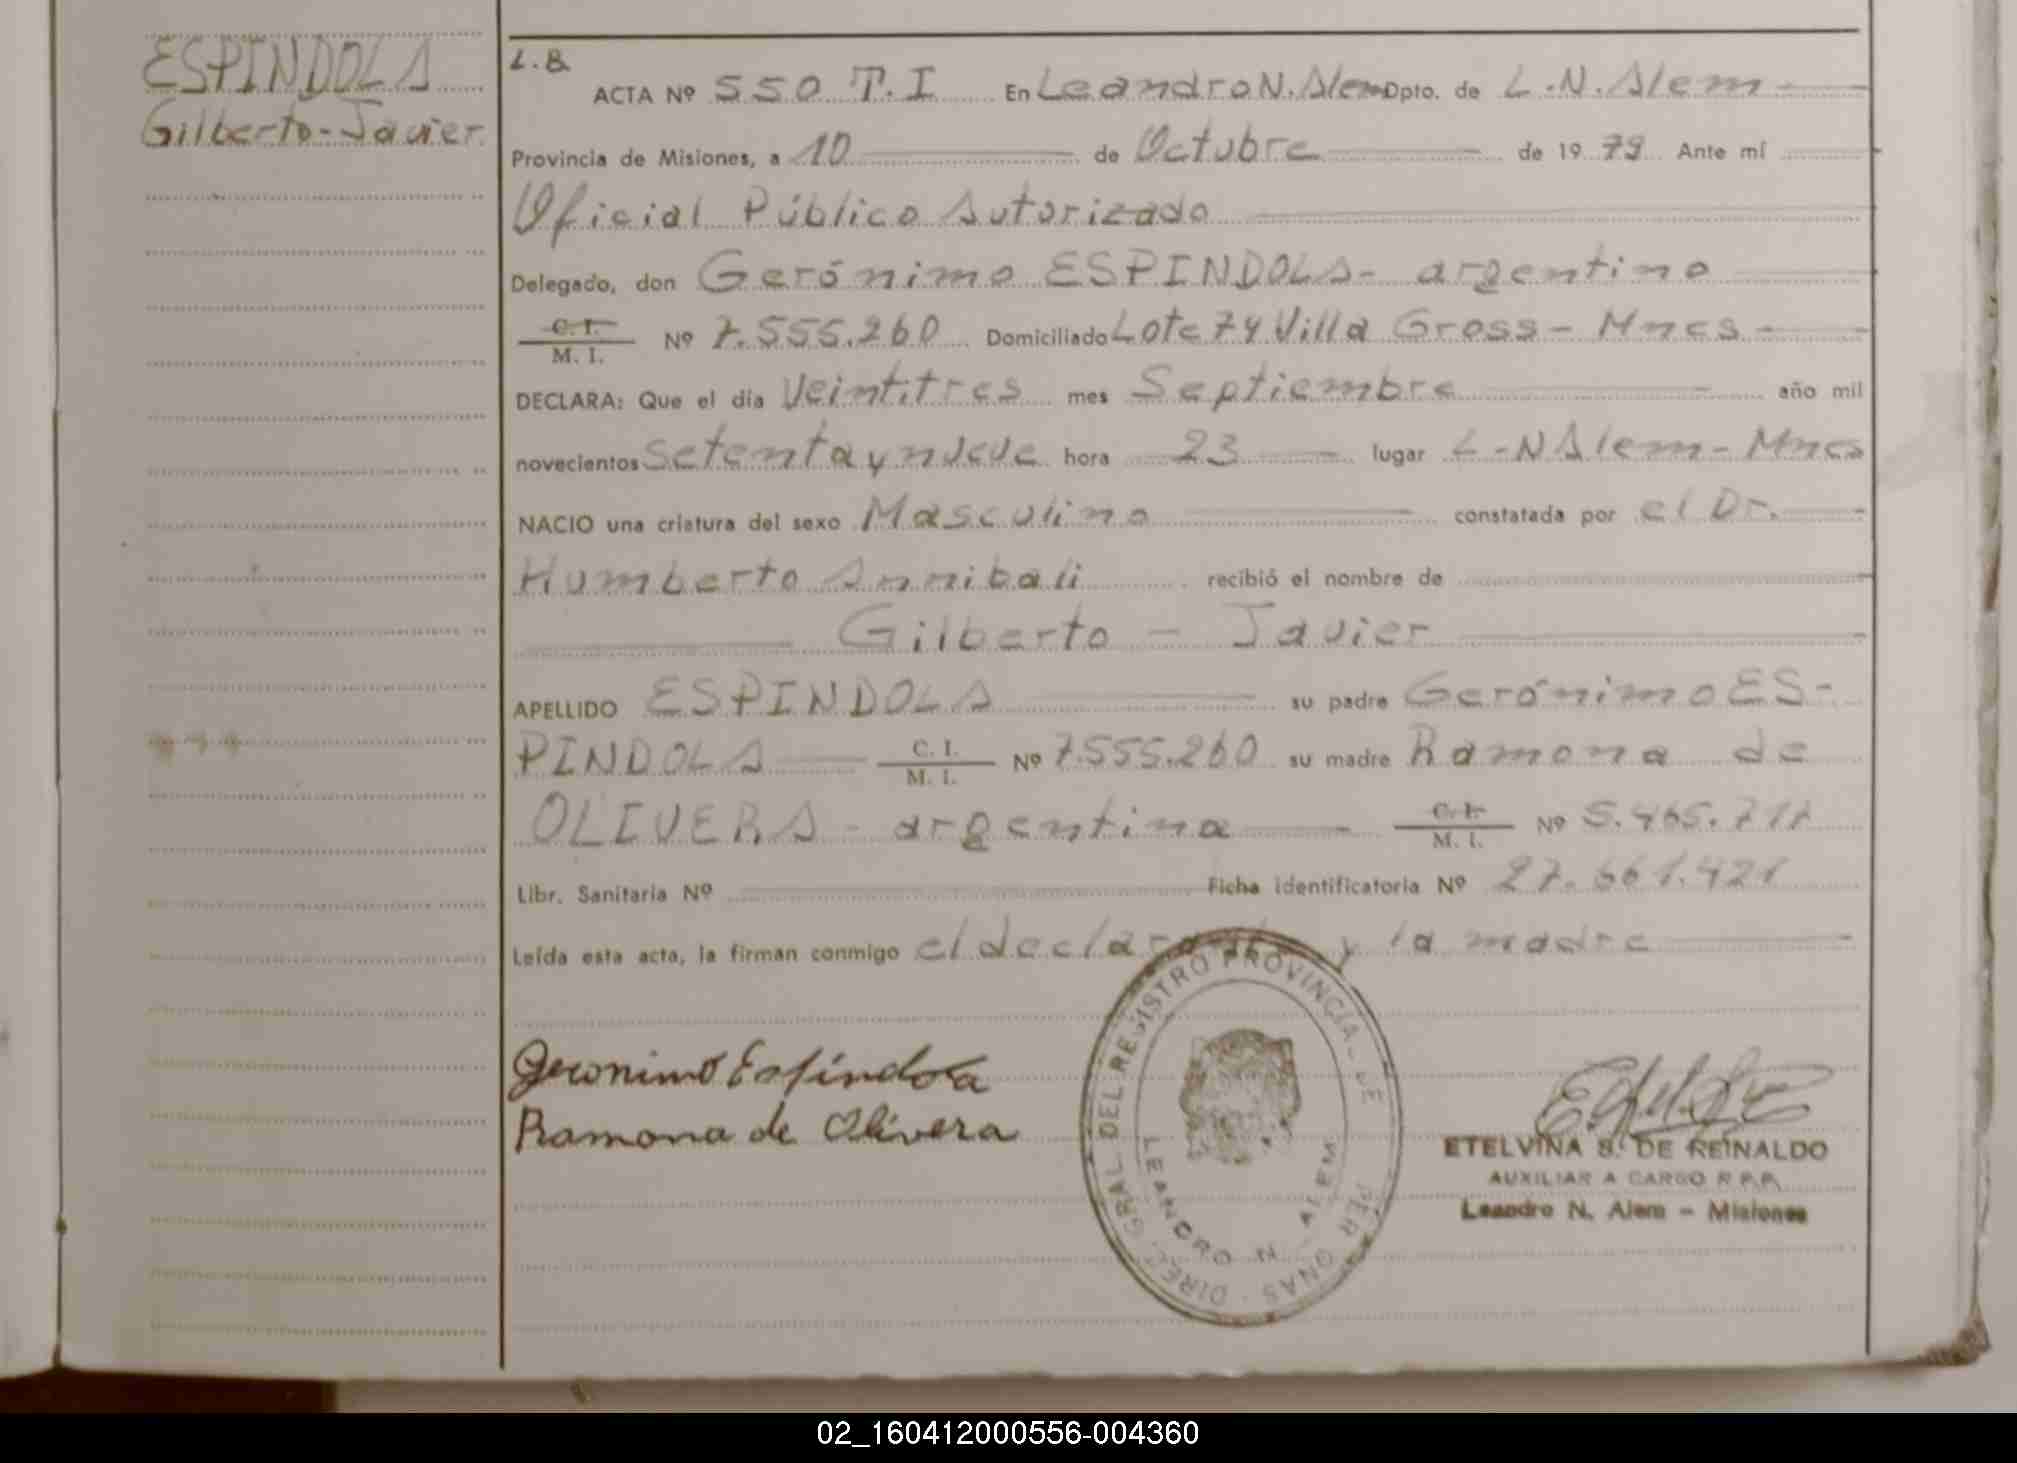 ESPINDOLA
Gilberto-Javier.
L.B.
ACTA Nº 550 T.I En Leandro N. Alem Dpto. de L.N. Alem -
Provincia de Misiones, a 10 de Octubre de 1979 Ante mí
Oficial Público Autorizado
Delegado, don Gerónimo ESPINDOLA- argentino
C. I. / M. I. Nº 7.555.260 Domiciliado Lote 74 Villa Gross - Mnes -
DECLARA: Que el día Veintitres mes Septiembre año mil
novecientos setenta y nueve hora 23 lugar L-N Alem - Mnes
NACIO una criatura del sexo Masculino constatada por el Dr.
Humberto Annibali recibió el nombre de
Gilberto - Javier
APELLIDO ESPINDOLA su padre Gerónimo ES-
PINDOLA C. I. / M. I. Nº 7.555.260 su madre Ramona de
OLIVERA - argentina C. I. / M. I. Nº 5.465.717
Libr. Sanitaria Nº Ficha identificatoria Nº 27.661.421
Leída esta acta, la firman conmigo el declarante y la madre
Geronimo Espíndola
Ramona de Olivera
DIREC. GRAL. DEL REGISTRO PROVINCIAL DE PERSONAS
LEANDRO N. ALEM
ETELVINA S. DE REINALDO
AUXILIAR A CARGO R.P.P.
Leandro N. Alem - Misiones
02_160412000556-004360